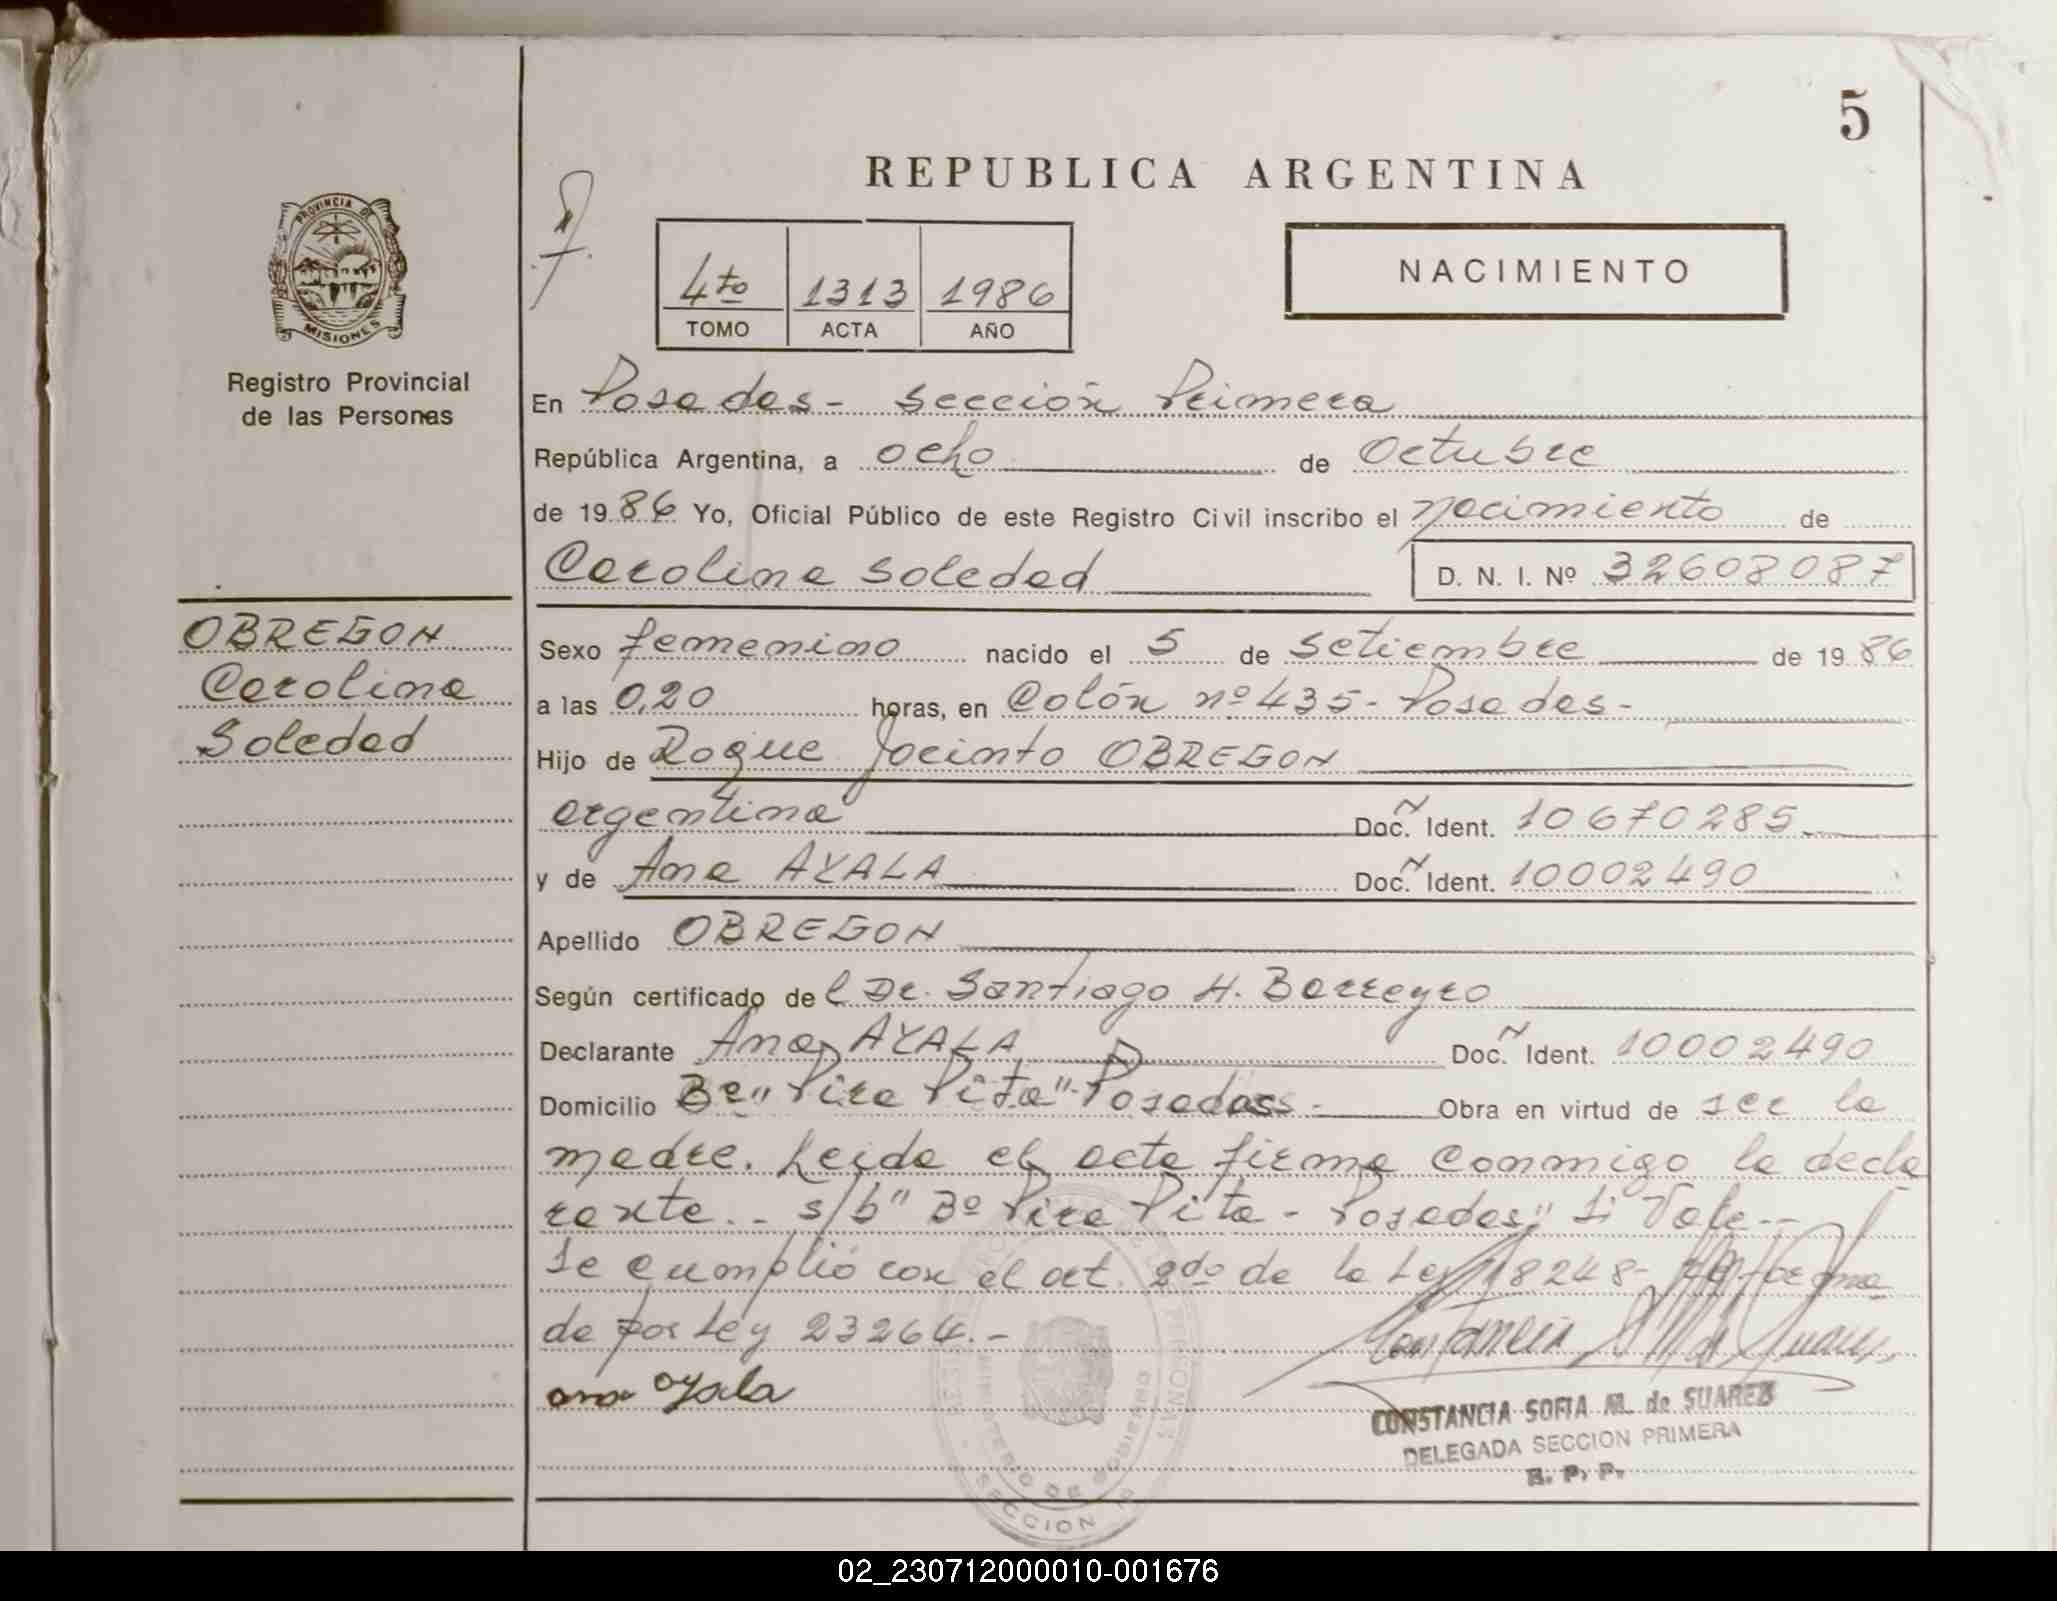 5
REPUBLICA ARGENTINA
PROVINCIA DE
MISIONES
Registro Provincial
de las Personas
4to 1313 1986
TOMO ACTA AÑO
NACIMIENTO
En Posadas - Sección Primera
República Argentina, a ocho de Octubre
de 1986 Yo, Oficial Público de este Registro Civil inscribo el nacimiento de
Carolina Soledad D. N. I. Nº 32608087
OBREGON
Carolina
Soledad
Sexo femenino nacido el 5 de setiembre de 1986
a las 0,20 horas, en Colón nº 435 - Posadas -
Hijo de Roque Jacinto OBREGON
argentina Doc. Ident. 10670285
y de Ana AYALA Doc. Ident. 10002490
Apellido OBREGON
Según certificado del Dr. Santiago H. Barreyro
Declarante Ana AYALA Doc. Ident. 10002490
Domicilio Bº "Pira Pita" - Posadas - Obra en virtud de ser la
madre. Leida el acta firma conmigo la decla
rante. - s/b" Bº Pira Pita - Posadas": Vale --
Se cumplió con el art. 2do de la Ley 18248-
da por Ley 23264.-
ana ayala
CONSTANCIA SOFIA M. de SUAREZ
DELEGADA SECCION PRIMERA
R. P. P.
MINISTERIO DE GOBIERNO
SECCION 1ª
02_230712000010-001676